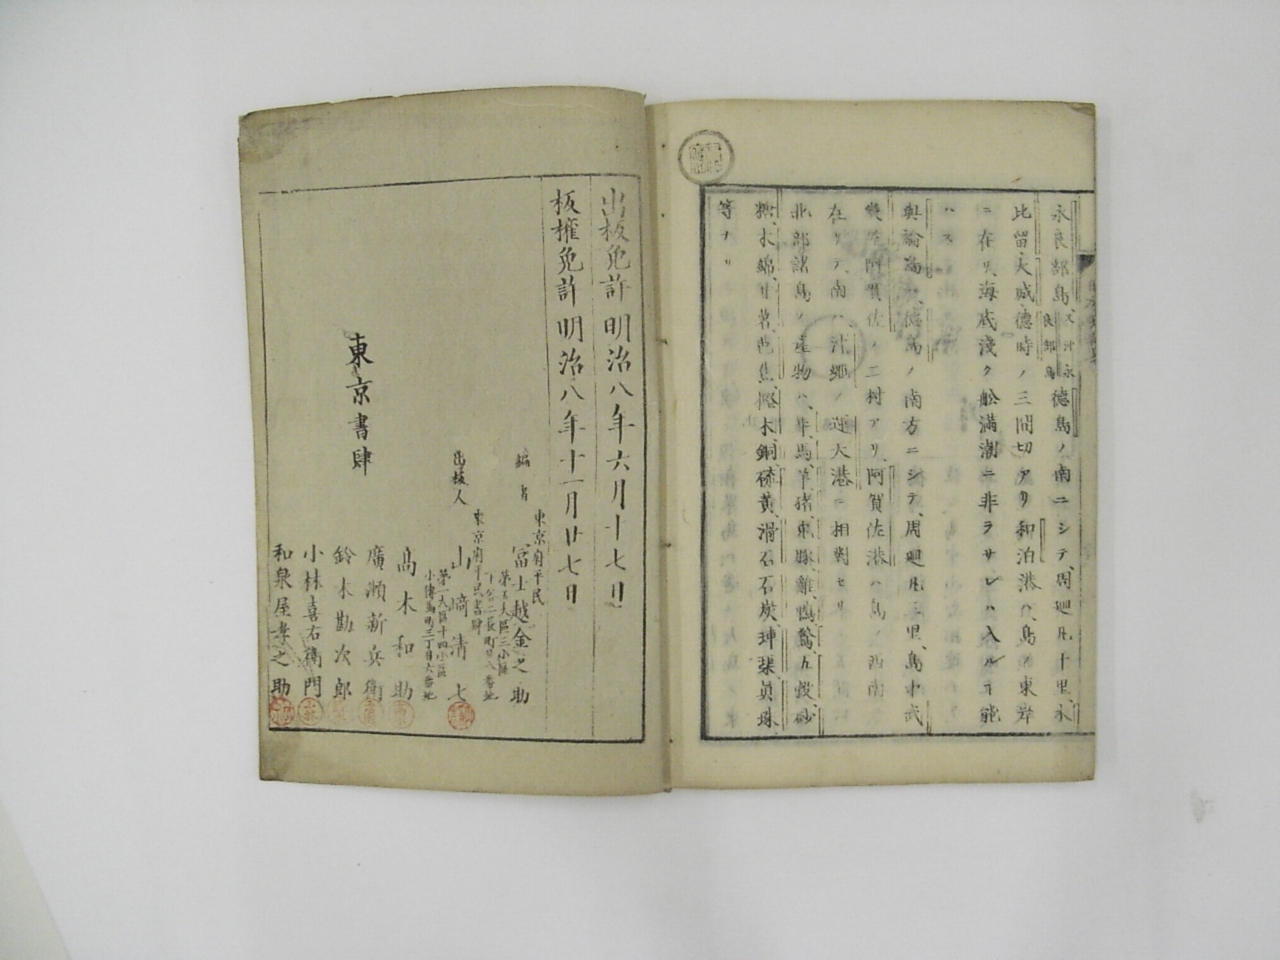 永良部島又沖永良部島德島ノ南ニシテ周廻凡十里永
比留大城德時ノ三間切アリ和泊港ハ島ノ東岸
ニ在リ海底淺ク舩滿潮ニ非ラサレハ入ルヿ能
ハス
與論島ハ德島ノ南方ニシテ周廻凡三里島中武
幾佐阿賀佐ノ二村アリ阿賀佐港ハ島ノ西南
在リテ南ハ沖繩ノ運大港ニ相對セリ
北部諸島ノ產物ハ牛馬羊猪豕豚雞鴨鶩五穀砂
糖木綿甘蔗芭焦樫木銅硫黃滑石石炭珅琹貝珠
等ナリ
出板免許明治八年六月十七日
板權免許明治八年十一月廿七日
編者
東京府平民
冨士越金之助
第五大區三小區
二長町廿八番地
出板人
東京府平民書肆
山﨑清七
第一大區十四小區
小傳馬町三丁目六番地
東京書肆
髙木和助
廣瀬新兵衛
鈴木勘次郎
小林喜右衛門
和泉屋孝之助